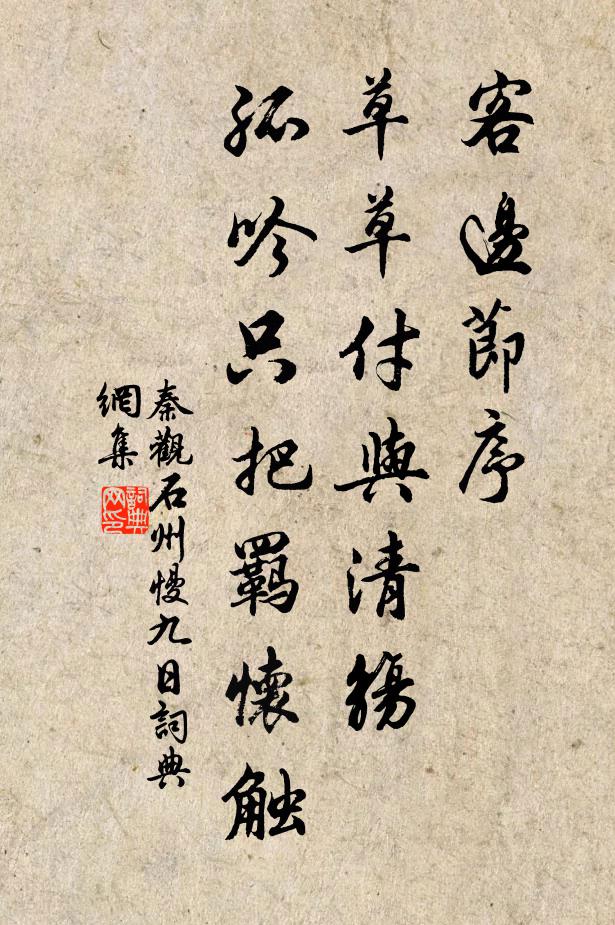 客邊節序
草草付與清觴
孤吟只把羈懷触
秦觀石州慢九日詞典
網集
詞典
网印